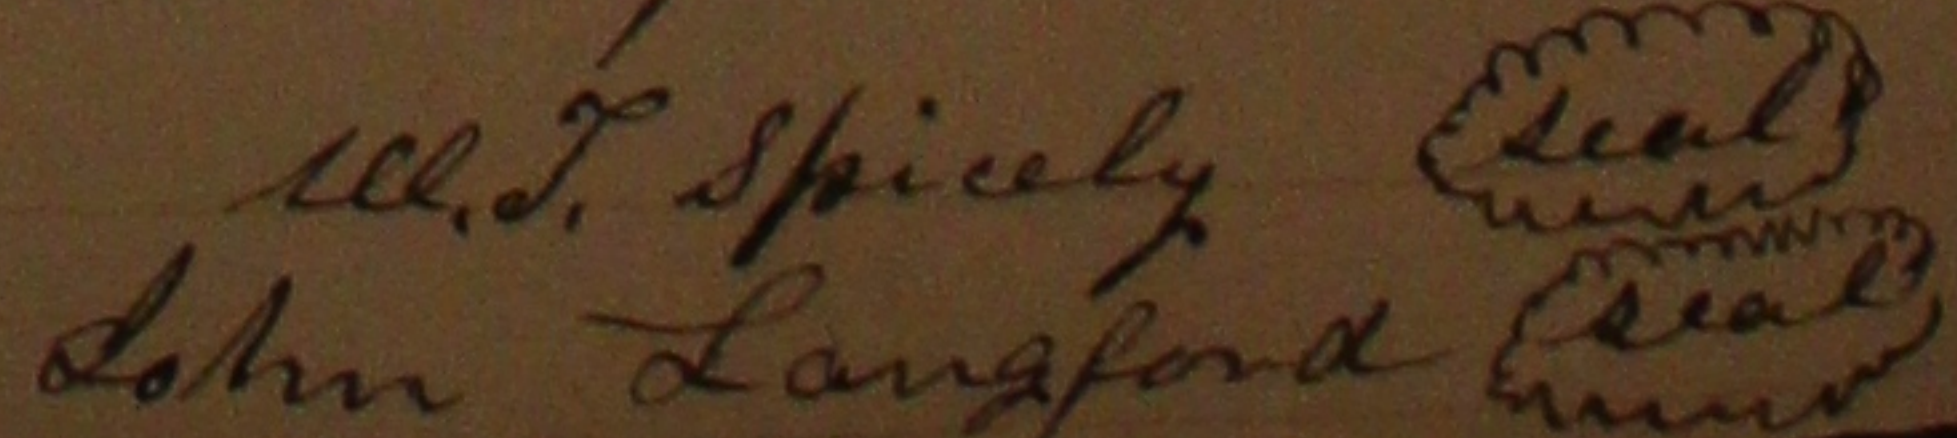 W.T. Spicely seal
John Langford seal